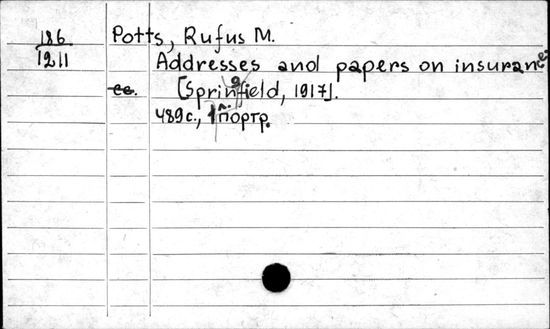 186
1211
Potts, Rufus M.
Addresses and papers on insurance
[Springfield, 1917].
489 с., 1 л. портр.